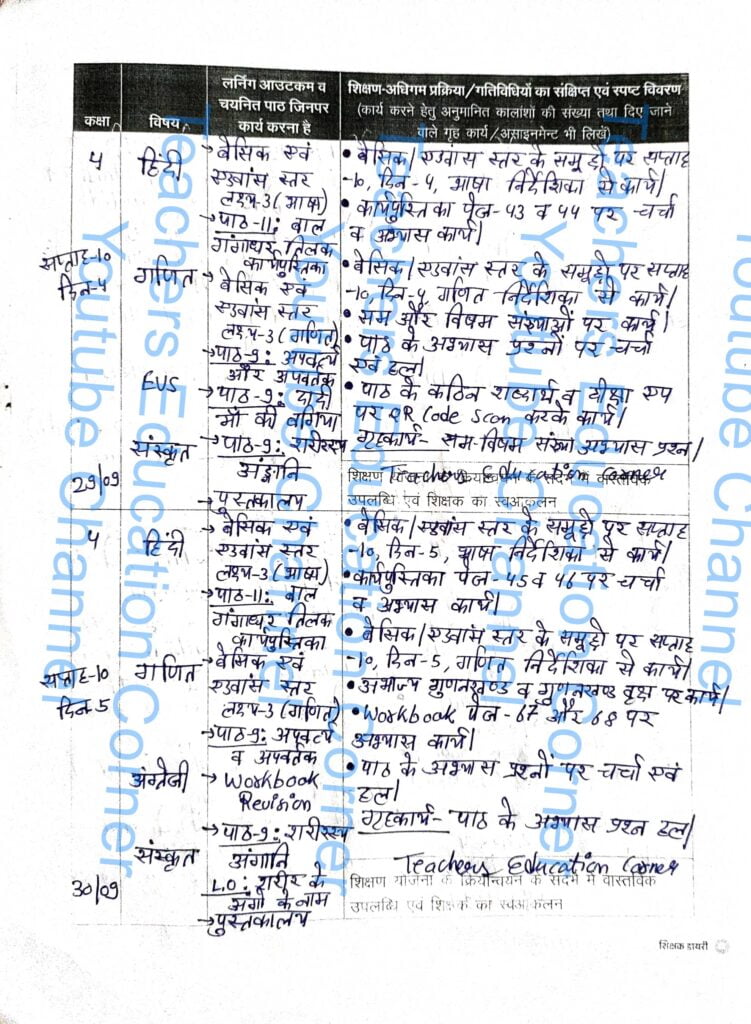 कक्षा
विषय
लर्निंग आउटकम व
चयनित पाठ जिनपर
कार्य करना है
शिक्षण-अधिगम प्रक्रिया/गतिविधियों का संक्षिप्त एवं स्पष्ट विवरण
(कार्य करने हेतु अनुमानित कालांशों की संख्या तथा दिए जाने
वाले गृह कार्य/असाइनमेंट भी लिखें)
4
सप्ताह-10
दिन-4
29/09
हिंदी
गणित
EVS
संस्कृत
→ बेसिक एवं
एडवांस स्तर
लक्ष्य-3 (भाषा)
→ पाठ-11: बाल
गंगाधर तिलक
कार्यपुस्तिका
→ बेसिक एवं
एडवांस स्तर
लक्ष्य-3 (गणित)
→ पाठ-9: अपवर्त्य
और अपवर्तक
→ पाठ-9: दादी
माँ की बगिया
→ पाठ-9: शरीरस्य
अंङ्गानि
→ पुस्तकालय
• बेसिक/एडवांस स्तर के समूहों पर सप्ताह
-10, दिन-4, भाषा निर्देशिका से कार्य।
• कार्यपुस्तिका पेज-43 व 44 पर चर्चा
व अभ्यास कार्य।
• बेसिक/एडवांस स्तर के समूहों पर सप्ताह
-10, दिन-4 गणित निर्देशिका से कार्य।
• सम और विषम संख्याओं पर कार्य।
• पाठ के अभ्यास प्रश्नों पर चर्चा
एवं हल।
• पाठ के कठिन शब्दार्थ व दीक्षा एप
पर QR Code Scan करके कार्य।
गृहकार्य- सम-विषम संख्या अभ्यास प्रश्न।
Teachers Education Corner
शिक्षण योजना के क्रियान्वयन के संदर्भ में वास्तविक
उपलब्धि एवं शिक्षक का स्वआकलन
4
सप्ताह-10
दिन-5
30/09
हिंदी
गणित
अंग्रेजी
संस्कृत
→ बेसिक एवं
एडवांस स्तर
लक्ष्य-3 (भाषा)
→ पाठ-11: बाल
गंगाधर तिलक
कार्यपुस्तिका
→ बेसिक एवं
एडवांस स्तर
लक्ष्य-3 (गणित)
→ पाठ-9: अपवर्त्य
व अपवर्तक
→ Workbook
Revision
→ पाठ-9: शरीरस्य
अंगानि
L.O: शरीर के
अंगों के नाम
→ पुस्तकालय
• बेसिक/एडवांस स्तर के समूहों पर सप्ताह
-10, दिन-5, भाषा निर्देशिका से कार्य।
• कार्यपुस्तिका पेज-45 व 46 पर चर्चा
व अभ्यास कार्य।
• बेसिक/एडवांस स्तर के समूहों पर सप्ताह
-10, दिन-5, गणित निर्देशिका से कार्य।
• अभाज्य गुणनखण्ड व गुणनखण्ड वृक्ष पर कार्य।
• Workbook पेज-67 और 68 पर
अभ्यास कार्य।
• पाठ के अभ्यास प्रश्नों पर चर्चा एवं
हल।
गृहकार्य- पाठ के अभ्यास प्रश्न हल।
Teachers Education Corner
शिक्षण योजना के क्रियान्वयन के संदर्भ में वास्तविक
उपलब्धि एवं शिक्षक का स्वआकलन
शिक्षक डायरी
Teachers Education Corner
Youtube Channel
Teachers Education Corner
Youtube Channel
Teachers Education Corner
Youtube Channel